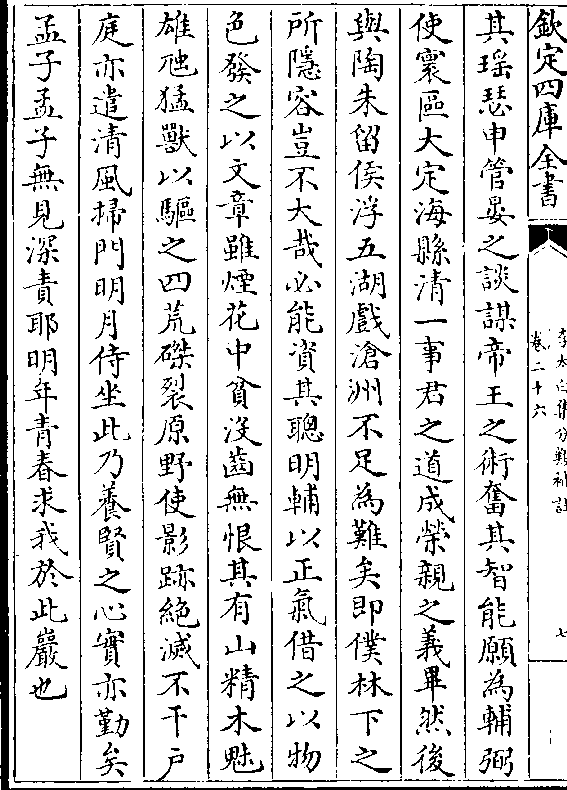 欽定四庫全書
李太白集分類補註
卷二十六
七
其瑶瑟申管晏之談謀帝王之術奮其智能願為輔弼
使寰區大定海縣清一事君之道成榮親之義畢然後
與陶朱留侯浮五湖戲滄洲不足為難矣即僕林下之
所隱容豈不大哉必能資其聰明輔以正氣借之以物
色發之以文章雖煙花中貧沒齒無恨其有山精木魅
雄虺猛獸以驅之四荒磔裂原野使影跡絶滅不干户
庭亦遣清風掃門明月侍坐此乃養賢之心實亦勤矣
孟子孟子無見深責耶明年青春求我於此巖也